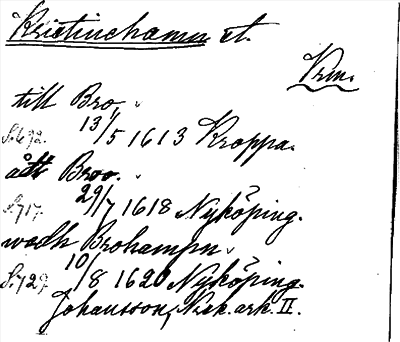 Kristinehamn st.
Vrm.
till Bro,
13/5 1613 Kroppa.
att Broo.
S.717. 29/7 1618 Nyköping.
wedh Brohampn.
S.729. 10/8 1620 Nyköping.
Johansson, Nork. ark. II.